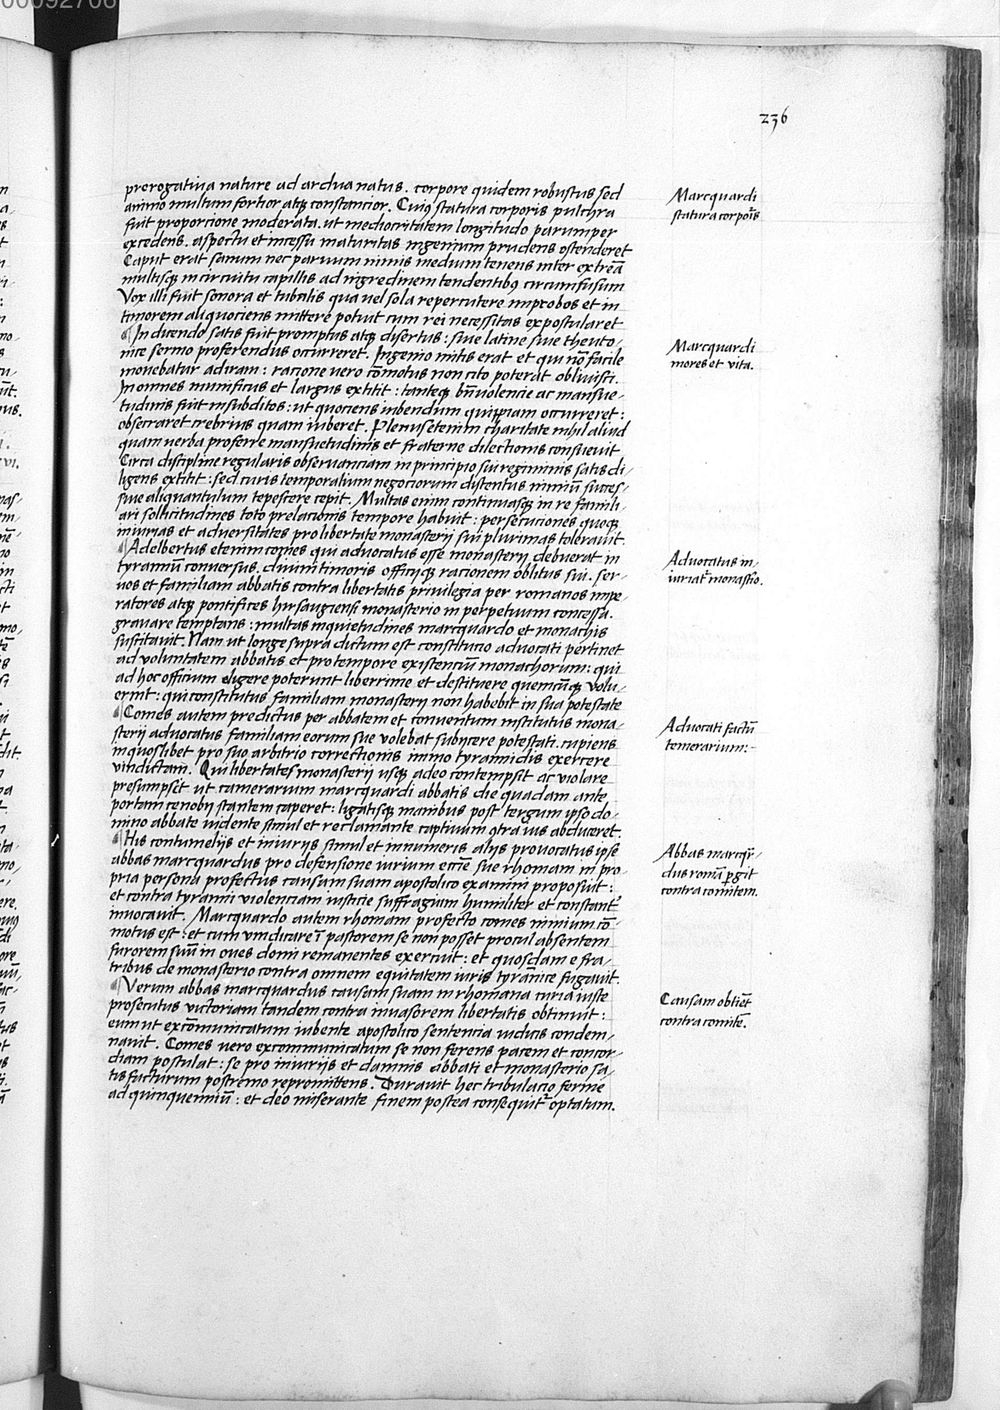 236
prerogatiua nature ad ardua natus. corpore quidem robustus sed
animo multum fortior atqꝫ constancior. Cuiꝰ statura corporis pulchra
fuit proporcione moderata. ut mediocritatem longitudo parumper
excedens. aspectu et incessu maturitas ingenium prudens ostenderet
Caput erat sanum nec paruum nimis medium tenens inter extrema
multisqꝫ in circuitu capillis ad nigredinem tendentibꝰ circumfusum
Vox illi fuit sonora et tubalis qua uel sola repercutere improbos et in
timorem aliquociens mittere potuit cum rei necessitas expostularet
¶ In dicendo satis fuit promptus atqꝫ disertus: siue latine siue theuto-
nice sermo proferendus occurreret. Ingenio mitis erat et qui nō facile
mouebatur ad iram: racione uero cōmotus non cito poterat obliuisci.
In omnes munificus et largus extitit: tanteqꝫ bn̄uolencie ac mansue-
tudinis fuit in subditos: ut quociens iubendum quippiam occurreret:
obsecraret crebrius quam iuberet. Plenus etenim charitate nihil aliud
quam uerba proferre mansuetudinis et fraterne dilectionis consueuit
Circa discipline regularis obseruanciam in principio sui regiminis satis di-
ligens extitit: sed curis temporalium negociorum distentus nimiū succes-
siue aliquantulum tepescere cepit. Multas enim continuasqꝫ in re famili-
ari sollicitudines toto prelacionis tempore habuit: persecuciones quoqꝫ
iniurias et aduersitates pro libertate monasterij sui plurimas tolerauit.
¶ Adelbertus etenim comes qui aduocatus esse monasterij debuerat in
tyrannū conuersus. diuini timoris officijqꝫ racionem oblitus sui. ser-
uos et familiam abbatis contra libertatis priuilegia per romanos impe-
ratores atqꝫ pontifices hirsaugiensi monasterio in perpetuum concessa.
grauare temptans: multas inquietudines marcquardo et monachis
suscitauit. Nam ut longe supra dictum est constitucio aduocati pertinet
ad voluntatem abbatis et pro tempore existenciū monachorum: qui
ad hoc officium eligere poterunt liberrime et destituere quemcūqꝫ volu-
erint: qui constitutus familiam monasterij non habebit in sua potestate
¶ Comes autem predictus per abbatem et conuentum institutus mona-
sterij aduocatus familiam eorum sue volebat subijcere potestati. cupiens
in quoslibet pro suo arbitrio correctionis immo tyrannidis exercere
vindictam. Qui libertates monasterij usqꝫ adeo contempsit ac violare
presumpsit ut camerarium marcquardi abbatis die quadam ante
portam cenobij stantem caperet: ligatisqꝫ manibus post tergum ipso do-
mino abbate uidente simul et reclamante captiuum cōtra ius abduceret.
¶ His contumelijs et iniurijs simul et innumeris alijs prouocatus ipse
abbas marcquardus pro defensione iurium eccl̄ie sue rhomam in pro
pria persona profectus causam suam apostolico examini proposuit:
et contra tyranni violenciam iusticie suffragium humiliter et constant̄
inuocauit. Marcquardo autem rhomam profecto comes nimium cō-
motus est: et cum vindicare ī pastorem se non posset procul absentem
furorem suū in oues domi remanentes exercuit: et quosdam e fra-
tribus de monasterio contra omnem equitatem iuris tyrānice fugauit.
¶ Verum abbas marcquardus causam suam in rhomana curia iuste
prosecutus victoriam tandem contra inuasorem libertatis obtinuit:
eum ut excōmunicatum iubente apostolico sentencia iudicis condem-
nauit. Comes uero excommunicatum se non ferens pacem et concor-
diam postulat: se pro iniurijs et damnis abbati et monasterio sa-
tisfacturum postremo repromittens. Durauit hec tribulacio ferme
ad quinquenniū: et deo miserante finem postea consequit̄ optatum.
Marcquardi
statura corpoīs
Marcquardi
mores et vita.
Aduocatus in-
iuriat̄ monast̄io.
Aduocati factū
temerarium:-
Abbas marcqr̄-
dus romā ꝑgit
contra comitem.
Causam obtiēt
contra comitē.